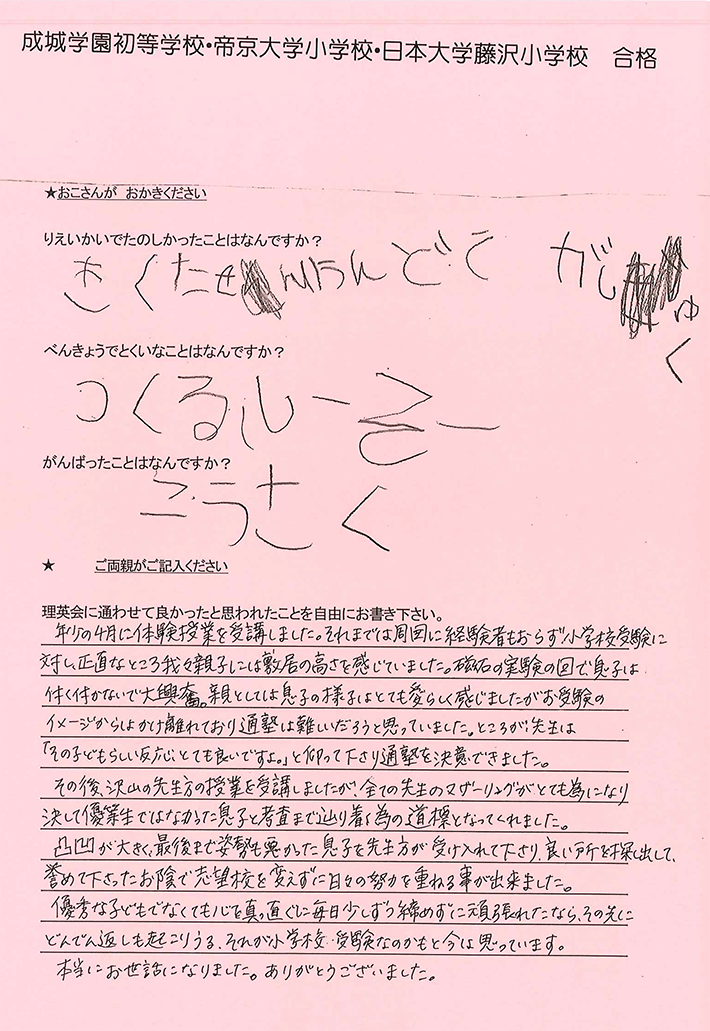 成城学園初等学校・帝京大学小学校・日本大学藤沢小学校　合格
★おこさんが　おかきください
りえいかいでたのしかったことはなんですか？
きくたせんうんどて　がしゅく
べんきょうでとくいなことはなんですか？
つくるしーえー
がんばったことはなんですか？
こうさく
★　ご両親がご記入ください
理英会に通わせて良かったと思われたことを自由にお書き下さい。
年りの4月に体験授業を受講しました。それまでは周囲に経験者もおらず小学校受験に
対し、正直なところ我々親子には敷居の高さを感じていました。磁石の実験の回で、息子は
付く付かないで大興奮。親としては息子の様子はとても愛らしく感じましたがお受験の
イメージからはかけ離れており通塾は難しいだろうと思っていました。ところが、先生は
「その子どもらしい反応、とても良いですよ。」と仰って下さり通塾を決意できました。
その後、沢山の先生方の授業を受講しましたが、全ての先生のマザーリングがとても為になり
決して優等生ではなかった息子と考査まで辿り着く為の道標となってくれました。
凸凹が大きく、最後まで姿勢も悪かった息子を先生方が受け入れて下さり、良い所を探し出して、
誉めて下さったお陰で志望校を変えずに日々の努力を重ねる事が出来ました。
優秀な子どもでなくても心を真っ直ぐに毎日少しずつ締めずに頑張れたなら、その先に
どんでん返しも起こりうる、それが小学校受験なのかもと今は思っています。
本当にお世話になりました。ありがとうございました。